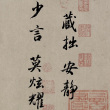 藏拙安靜
少言莫炫耀